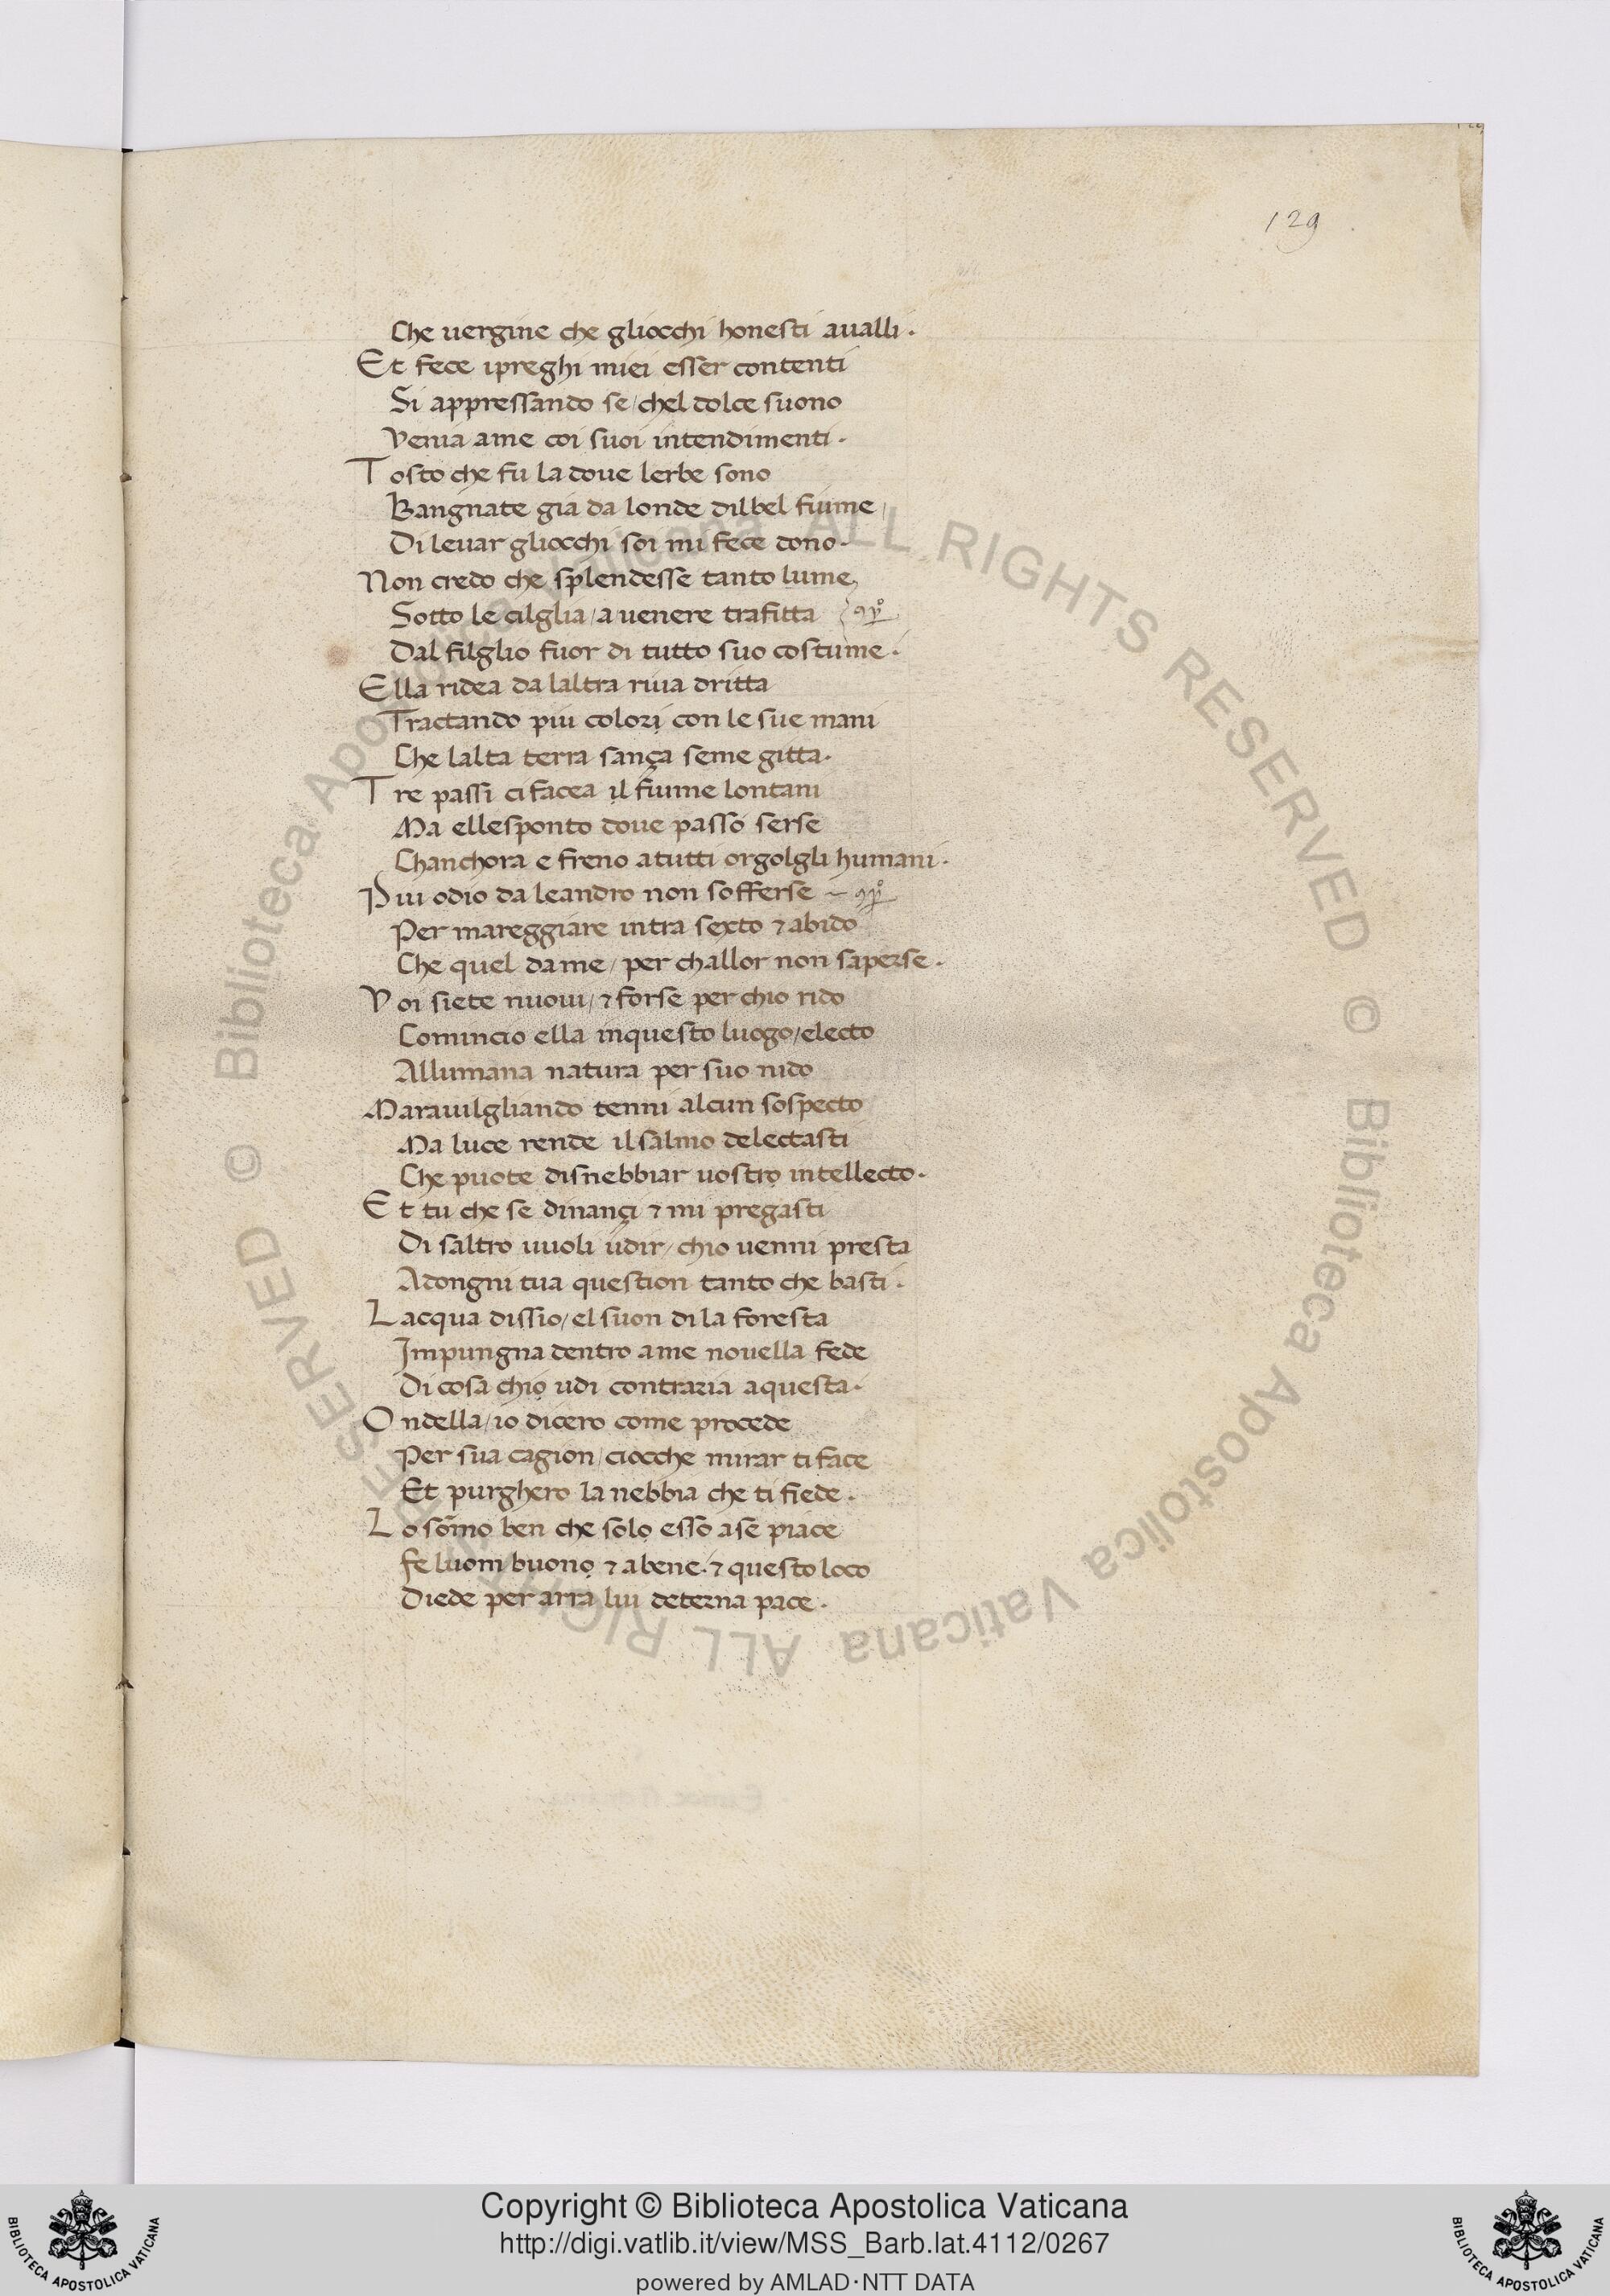 129
Che uergine che gliocchi honesti aualli .
Et fece ipreghi miei esser contenti
Si appressando se / chel dolce suono
Venia ame coi suoi intendimenti .
Tosto che fu la doue lerbe sono
Bangnate gia da londe dilbel fiume /
Di leuar gliocchi soi mi fece dono .
Non credo che splendesse tanto lume
Sotto le cilglia / a uenere trafitta
Dal filglio fuor di tutto suo costume .
Ella ridea da laltra riua dritta
Tractando piu colori con le sue mani
Che lalta terra sança seme gitta .
Tre passi ci facea il fiume lontani
Ma ellesponto doue passo serse
Chanchora e freno atutti orgolgli humani .
Piu odio da leandro non sofferse
Per mareggiare intra sexto ⁊ abido
Che quel dame / per challor non saperse .
Voi siete nuoui / ⁊ forse per chio rido
Comincio ella inquesto luogo / electo
Allumana natura per suo nido
Marauilgliando tenni alcun sospecto
Ma luce rende il salmo delectasti
Che puote disnebbiar uostro intellecto .
Et tu che se dinançi ⁊ mi pregasti
Di saltro uuoli udir / chio uenni presta
Adongni tua question tanto che basti .
Lacqua dissio / el suon di la foresta
Impungna dentro ame nouella fede
Di cosa chio udi contraria aquesta .
Ondella / io dicero come procede
Per sua cagion / ciocche mirar ti face
Et purghero la nebbia che ti fiede .
Lo som̄o ben che solo esso ase piace
fe luom buono ⁊ abene . ⁊ questo loco
Diede per arra lui deterna pace .
© Biblioteca Apostolica Vaticana ALL RIGHTS RESERVED © Biblioteca Apostolica Vaticana ALL RIGHTS RESERVED
BIBLIOTECA APOSTOLICA VATICANA
Copyright © Biblioteca Apostolica Vaticana
http://digi.vatlib.it/view/MSS_Barb.lat.4112/0267
powered by AMLAD·NTT DATA
BIBLIOTECA APOSTOLICA VATICANA